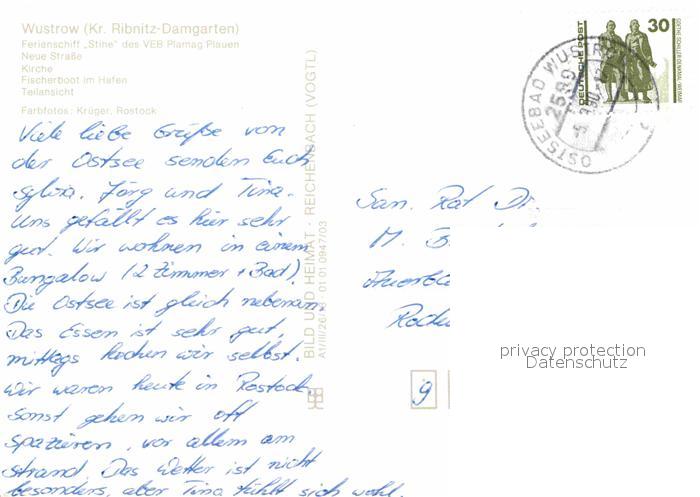 Wustrow (Kr. Ribnitz-Damgarten)
Ferienschiff „Stine" des VEB Plamag Plauen
Neue Straße
Kirche
Fischerboot im Hafen
Teilansicht
Farbfotos: Krüger, Rostock
Viele liebe Grüße von
der Ostsee senden Euch
Sylvia, Jörg und Tina.
Uns gefällt es hier sehr
gut. Wir wohnen in einem
Bungalow (2 Zimmer + Bad).
Die Ostsee ist gleich nebenan.
Das Essen ist sehr gut,
mittags kochen wir selbst.
Wir waren heute in Rostock.
Sonst gehen wir oft
spazieren, vor allem am
Strand. Das Wetter ist nicht
besonders, aber Tina fühlt sich wohl.
BILD UND HEIMAT · REICHENBACH (VOGTL)
A1/III/26/13 01 01 0947/03
DEUTSCHE POST
30
GOETHE-SCHILLER-DENKMAL · WEIMAR
OSTSEEBAD WUSTROW
2589
San. Rat Dr.
M. B
Auerb
Rode
9
privacy protection
Datenschutz